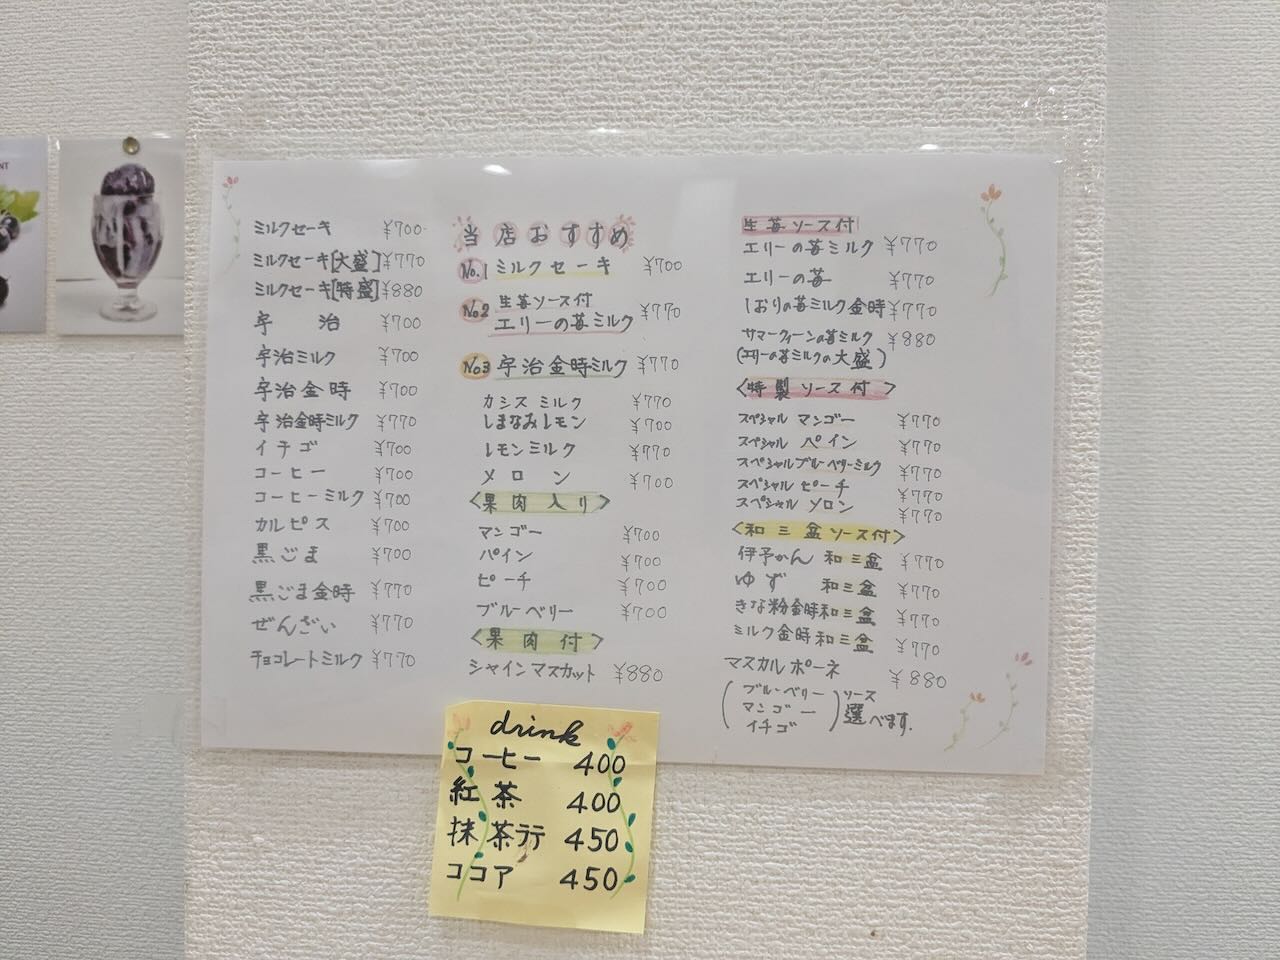 NT
ミルクセーキ ¥700
ミルクセーキ[大盛] ¥770
ミルクセーキ[特盛] ¥880
宇治 ¥700
宇治ミルク ¥700
宇治金時 ¥700
宇治金時ミルク ¥770
イチゴ ¥700
コーヒー ¥700
コーヒーミルク ¥700
カルピス ¥700
黒ごま ¥700
黒ごま金時 ¥770
ぜんざい ¥770
チョコレートミルク ¥770
当店おすすめ
No.1 ミルクセーキ ¥700
No2 生苺ソース付
エリーの苺ミルク ¥770
No3 宇治金時ミルク ¥770
カシスミルク ¥770
しまなみレモン ¥700
レモンミルク ¥770
メロン ¥700
<果肉入り>
マンゴー ¥700
パイン ¥700
ピーチ ¥700
ブルーベリー ¥700
<果肉付>
シャインマスカット ¥880
生苺ソース付
エリーの苺ミルク ¥770
エリーの苺 ¥770
しおりの苺ミルク金時 ¥770
サマークィーンの苺ミルク ¥880
(エリーの苺ミルクの大盛)
<特製ソース付>
スペシャル マンゴー ¥770
スペシャル パイン ¥770
スペシャルブルーベリーミルク ¥770
スペシャル ピーチ ¥770
スペシャル メロン ¥770
<和三盆ソース付>
伊予かん 和三盆 ¥770
ゆず 和三盆 ¥770
きな粉金時和三盆 ¥770
ミルク金時和三盆 ¥770
マスカルポーネ ¥880
(ブルーベリー
マンゴー
イチゴ) ソース選べます.
drink
コーヒー 400
紅茶 400
抹茶ラテ 450
ココア 450